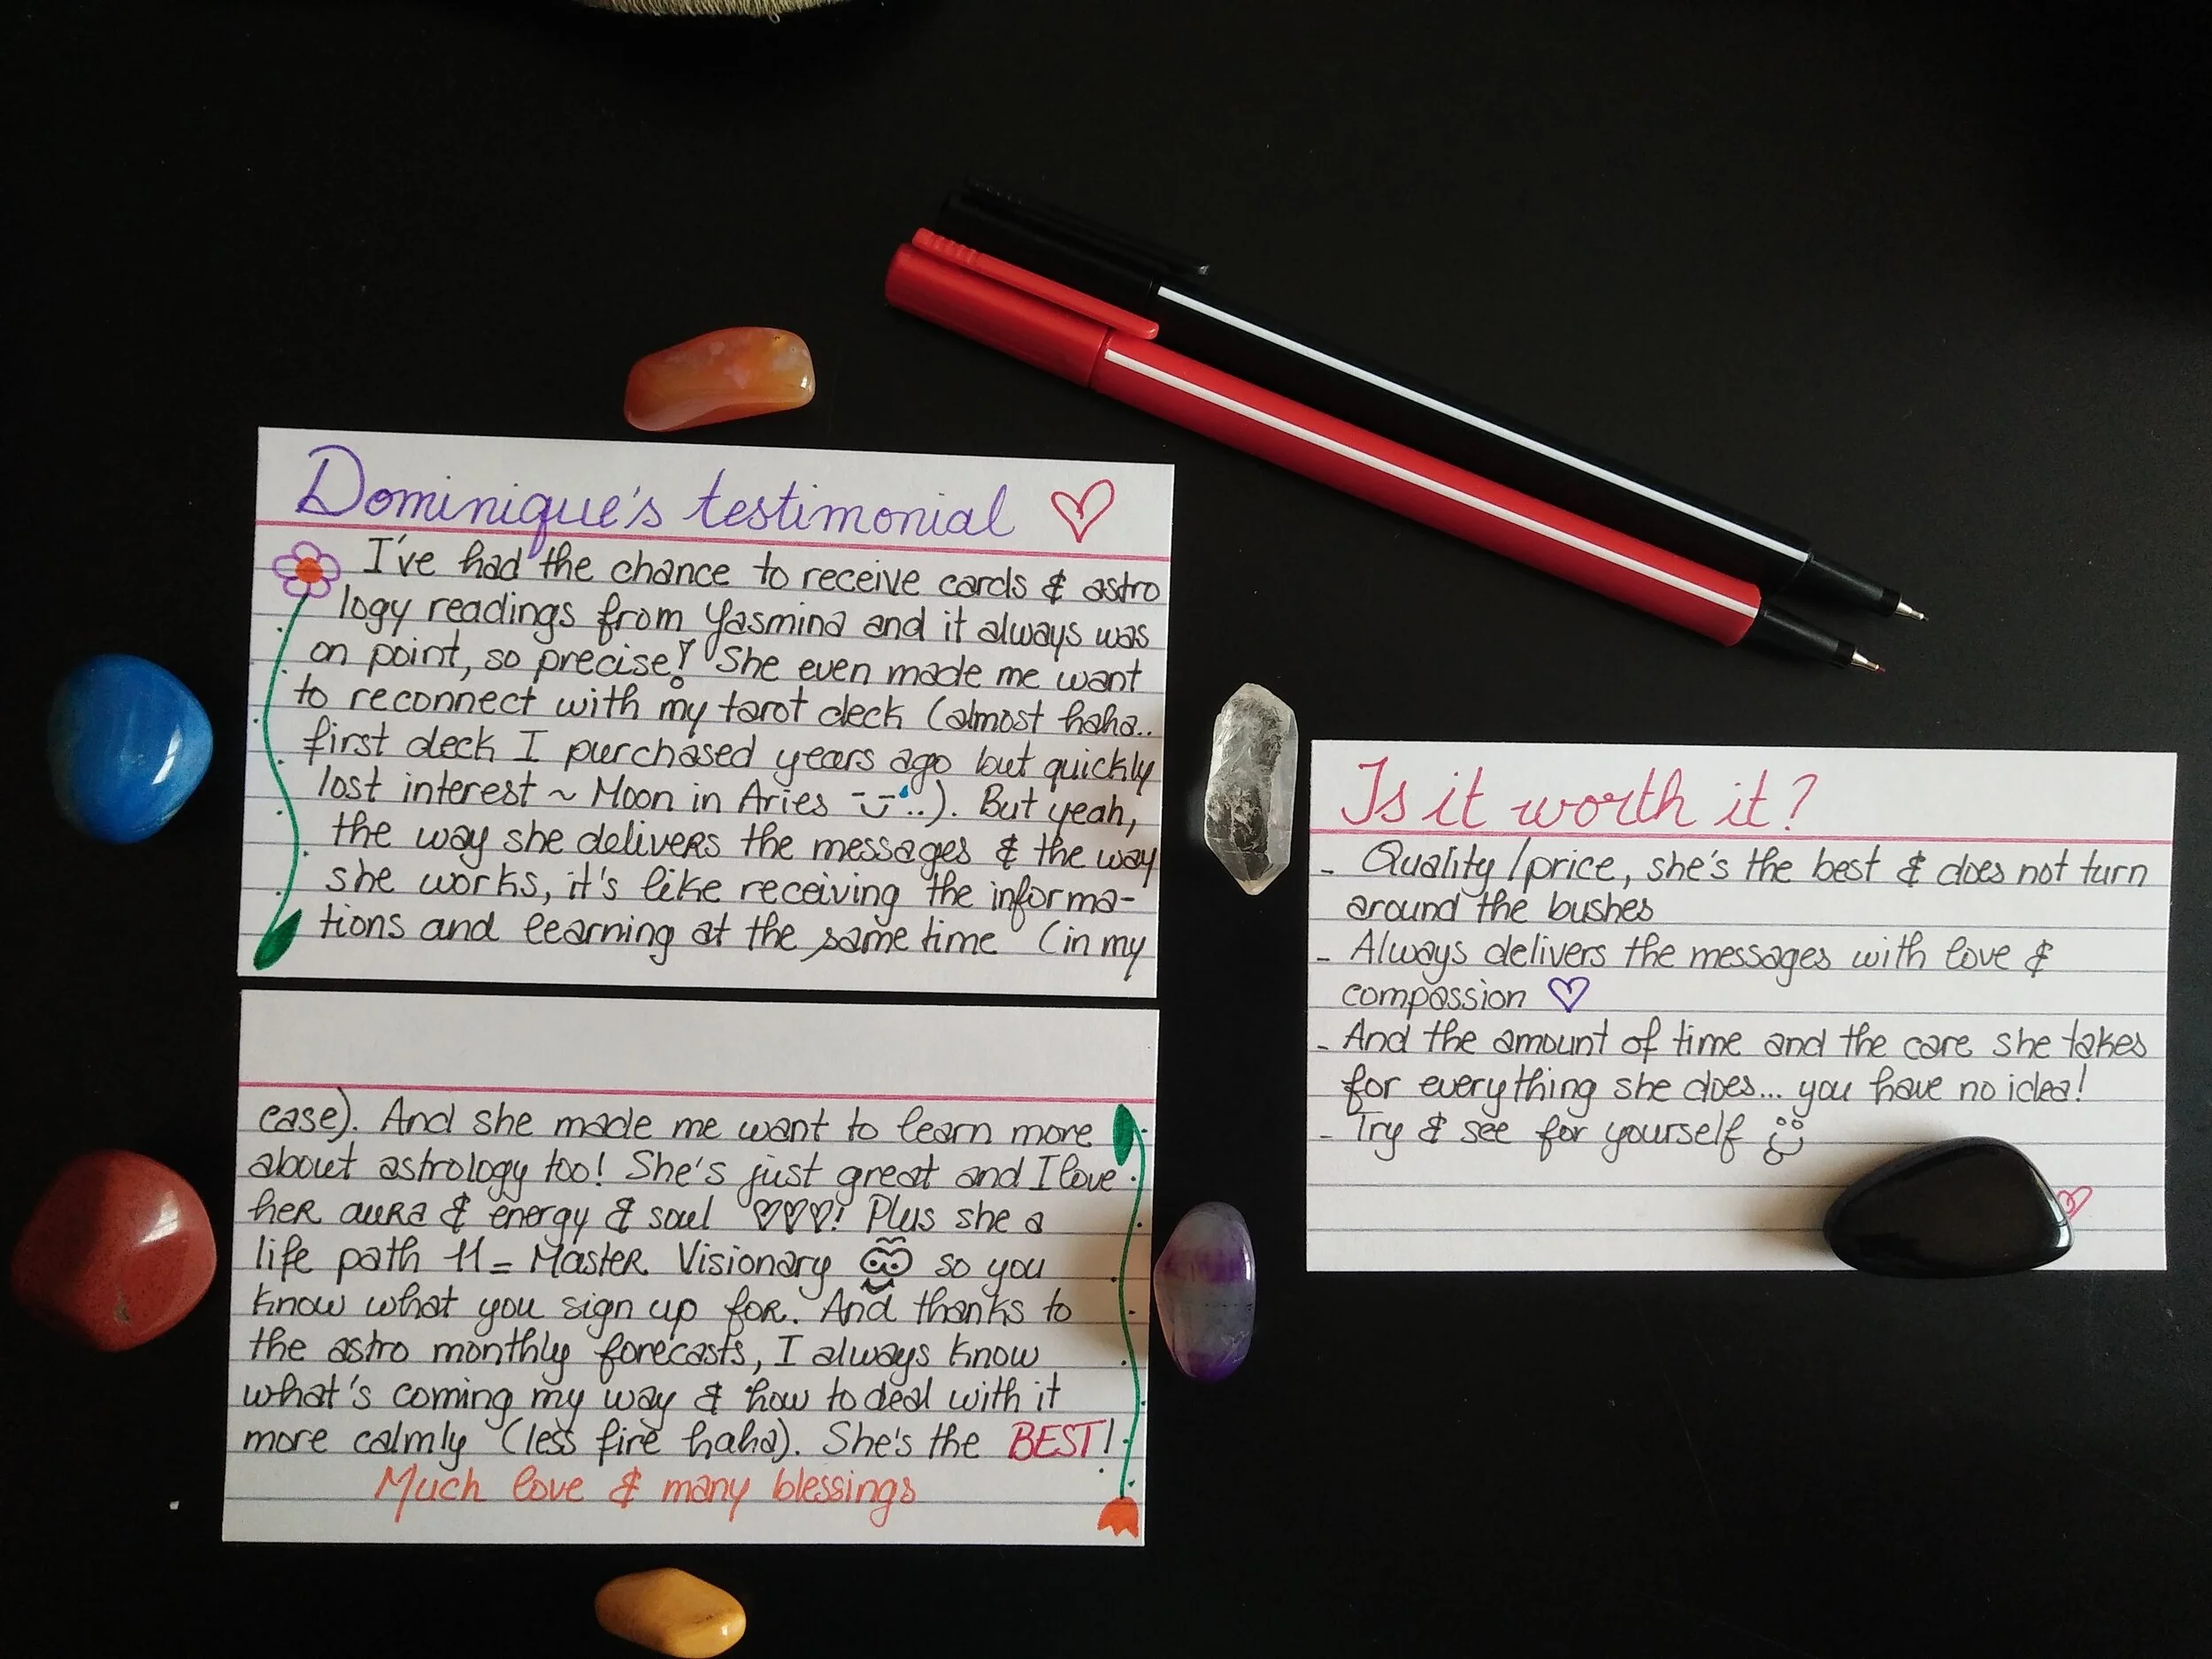 Dominique's testimonial
I've had the chance to receive cards & astro
logy readings from Yasmina and it always was
on point, so precise! She even made me want
to reconnect with my tarot deck (almost haha..
first deck I purchased years ago but quickly
lost interest ~ Moon in Aries ..). But yeah,
the way she delivers the messages & the way
she works, it's like receiving the informa-
tions and learning at the same time (in my
case). And she made me want to learn more
about astrology too! She's just great and I love
her aura & energy & soul ♡♡♡! Plus she a
life path 11 = Master Visionary so you
know what you sign up for. And thanks to
the astro monthly forecasts, I always know
what's coming my way & how to deal with it
more calmly (less fire haha). She's the BEST!
Much love & many blessings
Is it worth it?
- Quality/price, she's the best & does not turn
around the bushes
- Always delivers the messages with love &
compassion ♡
- And the amount of time and the care she takes
for everything she does... you have no idea!
- Try & see for yourself